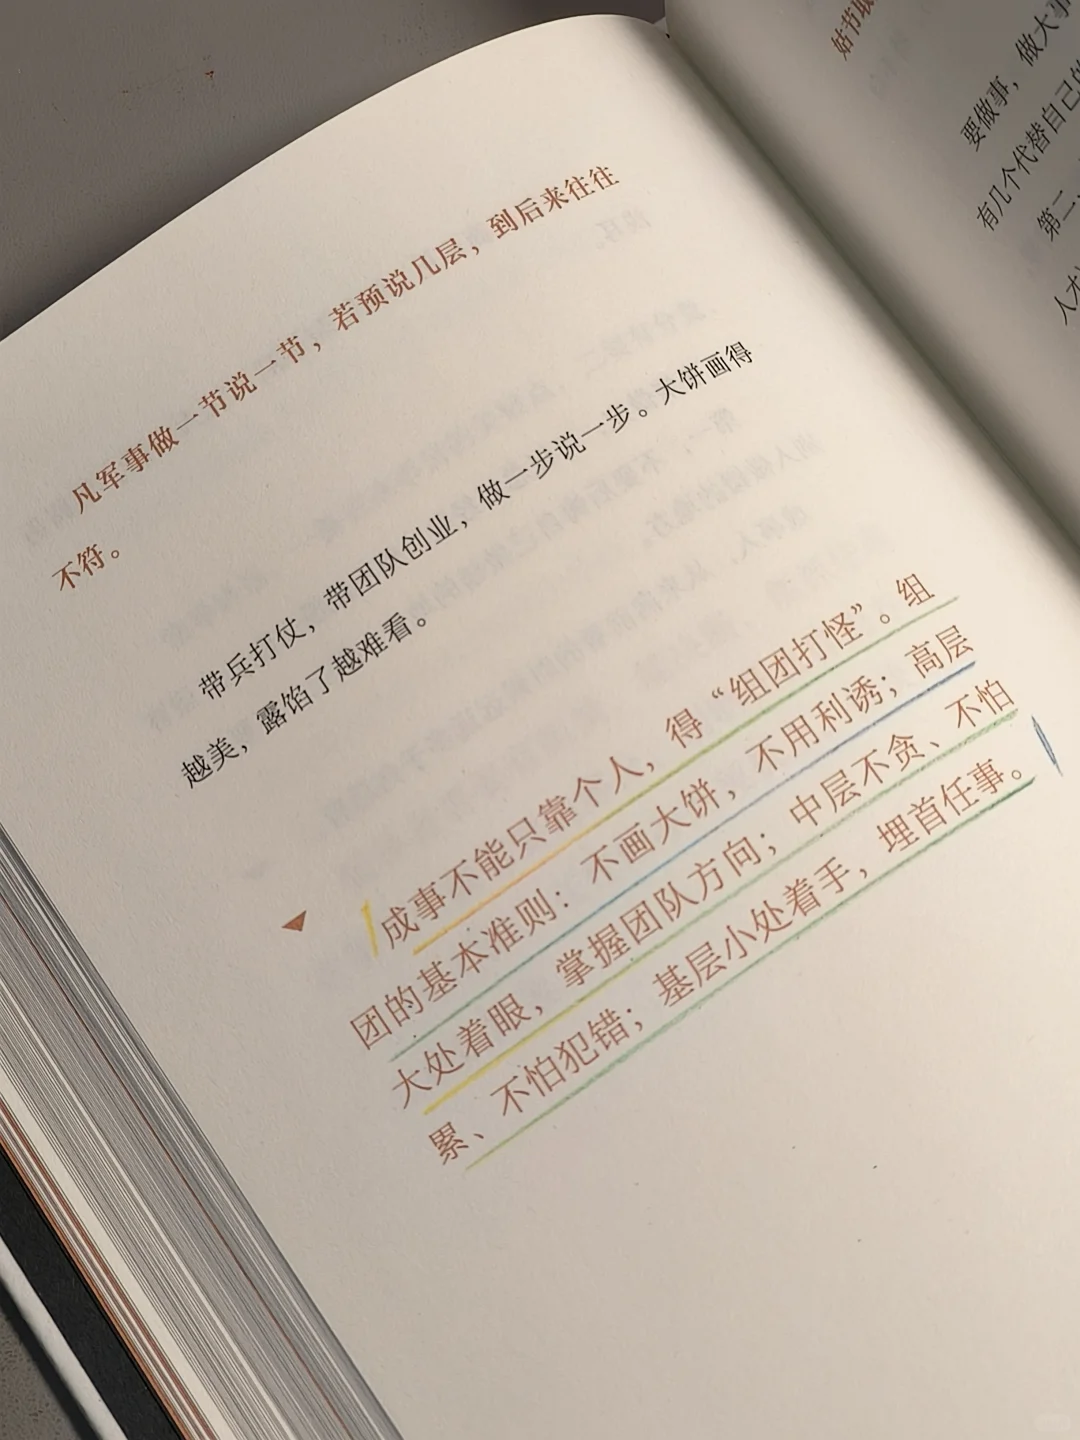 凡军事做一节说一节，若预说几层，到后来往往
不符。
带兵打仗，带团队创业，做一步说一步。大饼画得
越美，露馅了越难看。
成事不能只靠个人，得“组团打怪”。组
团的基本准则：不画大饼，不用利诱；高层
大处着眼，掌握团队方向；中层不贪、不怕
累、不怕犯错；基层小处着手，埋首任事。
要做事，做大事
有几个代替自己的
第二、
人才